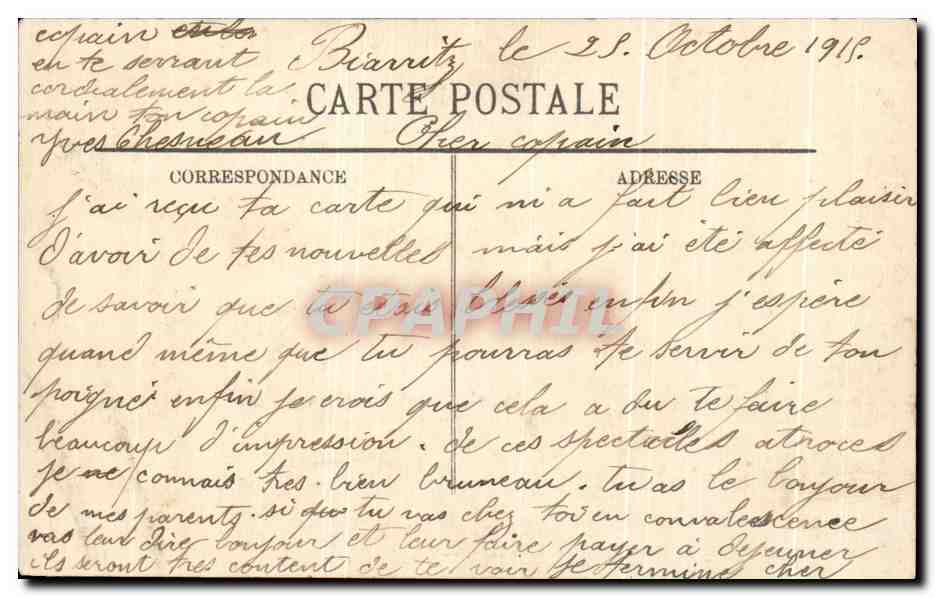 Biarritz le 25. Octobre 1915.
CARTE POSTALE
Cher copain
CORRESPONDANCE
ADRESSE
j'ai reçu ta carte qui m'a fait bien plaisir
d'avoir de tes nouvelles mais j'ai été affecté
de savoir que tu etais blessé enfin j'espère
quand même que tu pourras te servir de ton
poigné enfin je crois que cela a du te faire
beaucoup d'impression. de ces spectacles atroces
je ne connais tres bien bruneau. tu as le bonjour
de mes parents. si tu vas chez toi en convalescence
vas leur dire bonjour et leur faire payer à dejeuner
ils seront tres content de te voir je termine cher
copain
en te serrant
cordialement la
main ton copain
Yves Chesneau
CPAPHIL